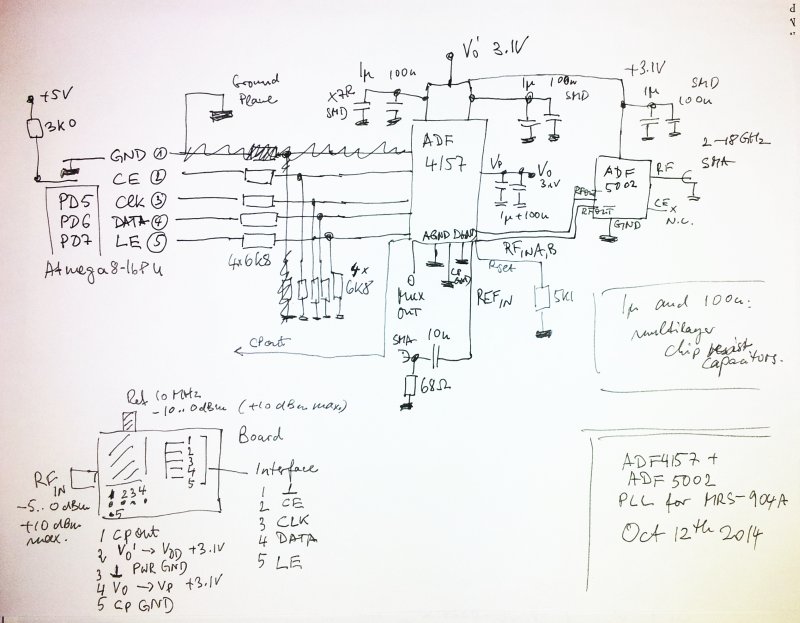 V0' 3.1V
+5V
3k0
Ground
Plane
X7R
SMD
1µ 100n
1µ 100n
SMD
+3.1V
1µ SMD
100n
2-18GHz
SMA
GND 1
CE 2
PD5 CLK 3
PD6 DATA 4
PD7 LE 5
Atmega8-16PU
4x6k8
4x
6k8
ADF
4157
Vp
V0
3.1V
1µ+100n
ADF
5002
RF
RFOUT
RFOUT
CE x
N.C.
GND
AGND DGND
CP
GND
RFINA,B
Rset
REFIN
5k1
MUX
OUT
CPout
SMA
10n
68Ω
1µ and 100n:
multilayer
chip
capacitors.
Ref 10 MHz
-10..0dBm (+10dBm max)
Board
RFIN
-5..0dBm
+10dBm
max.
1
2
3
4
5
1 2 3 4
5
Interface
1 ⊥
2 CE
3 CLK
4 DATA
5 LE
1 CPout
2 V0' → VDD +3.1V
3 ⊥ PWR GND
4 V0 → Vp +3.1V
5 CP GND
ADF4157 +
ADF5002
PLL for MRS-904A
Oct 12th 2014